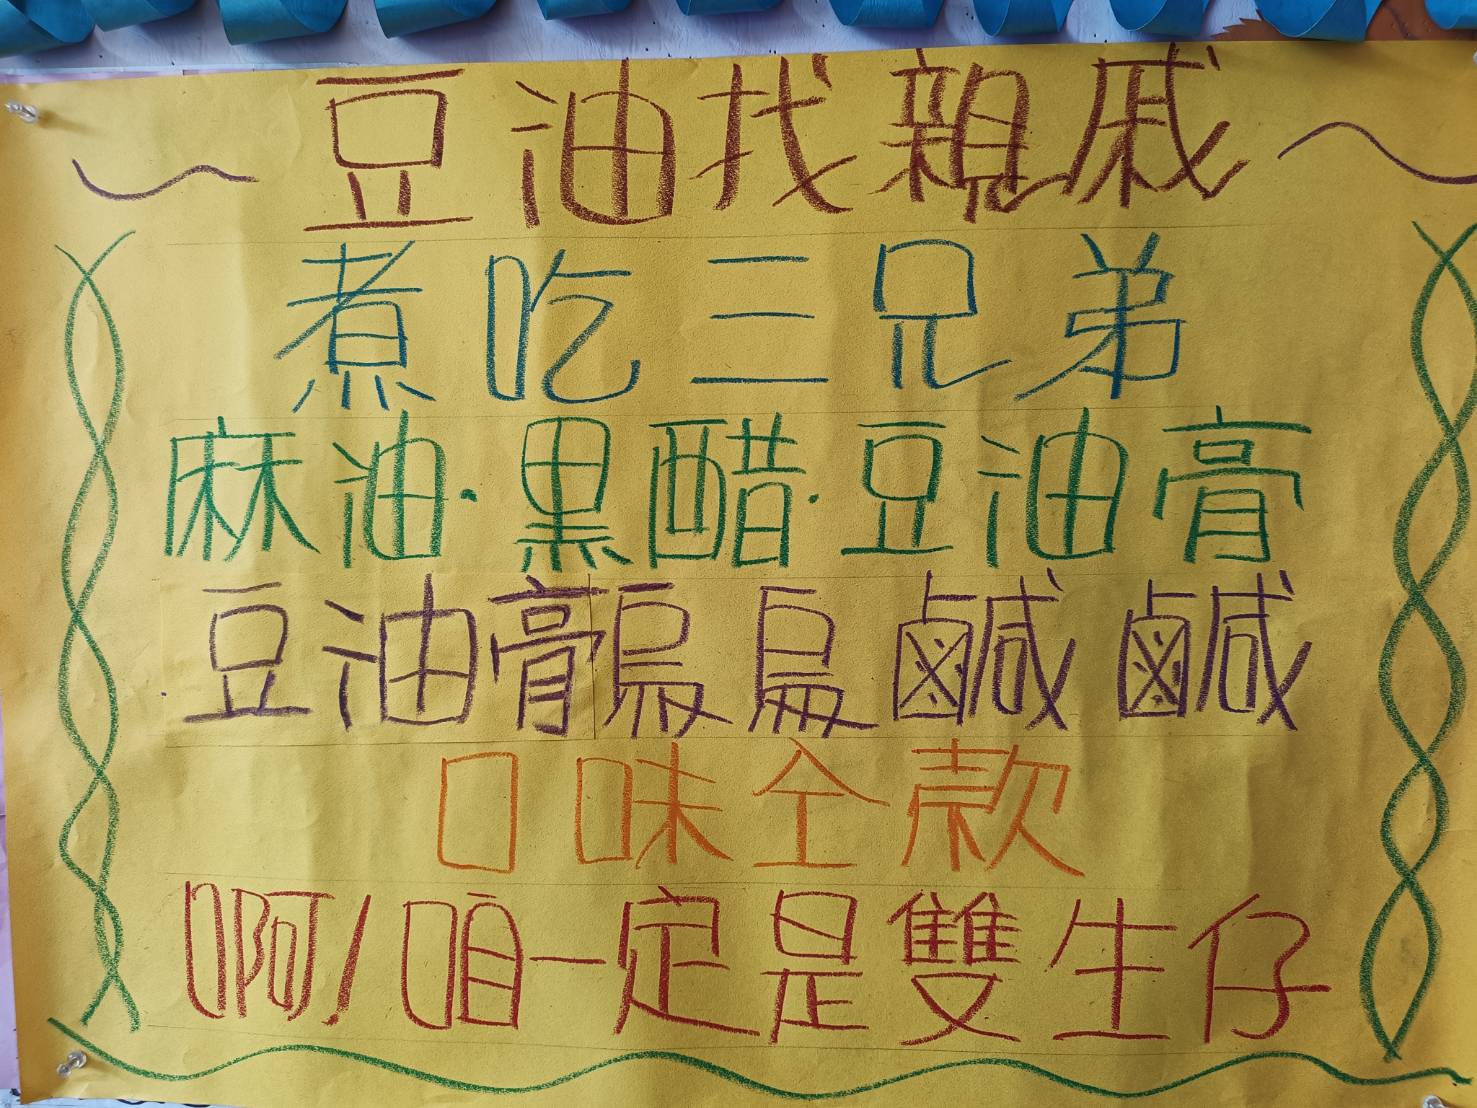 豆油找親戚
煮吃三兄弟
麻油·黑醋·豆油膏
豆油膏烏烏鹹鹹
口味仝款
啊!咱一定是雙生仔